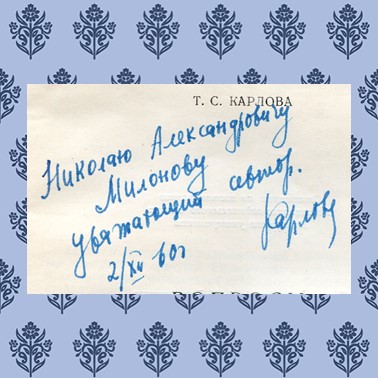 Т. С. КАРЛОВА
Николаю Александровичу
Милонову
уважающий автор.
2/XII 60г Карлова